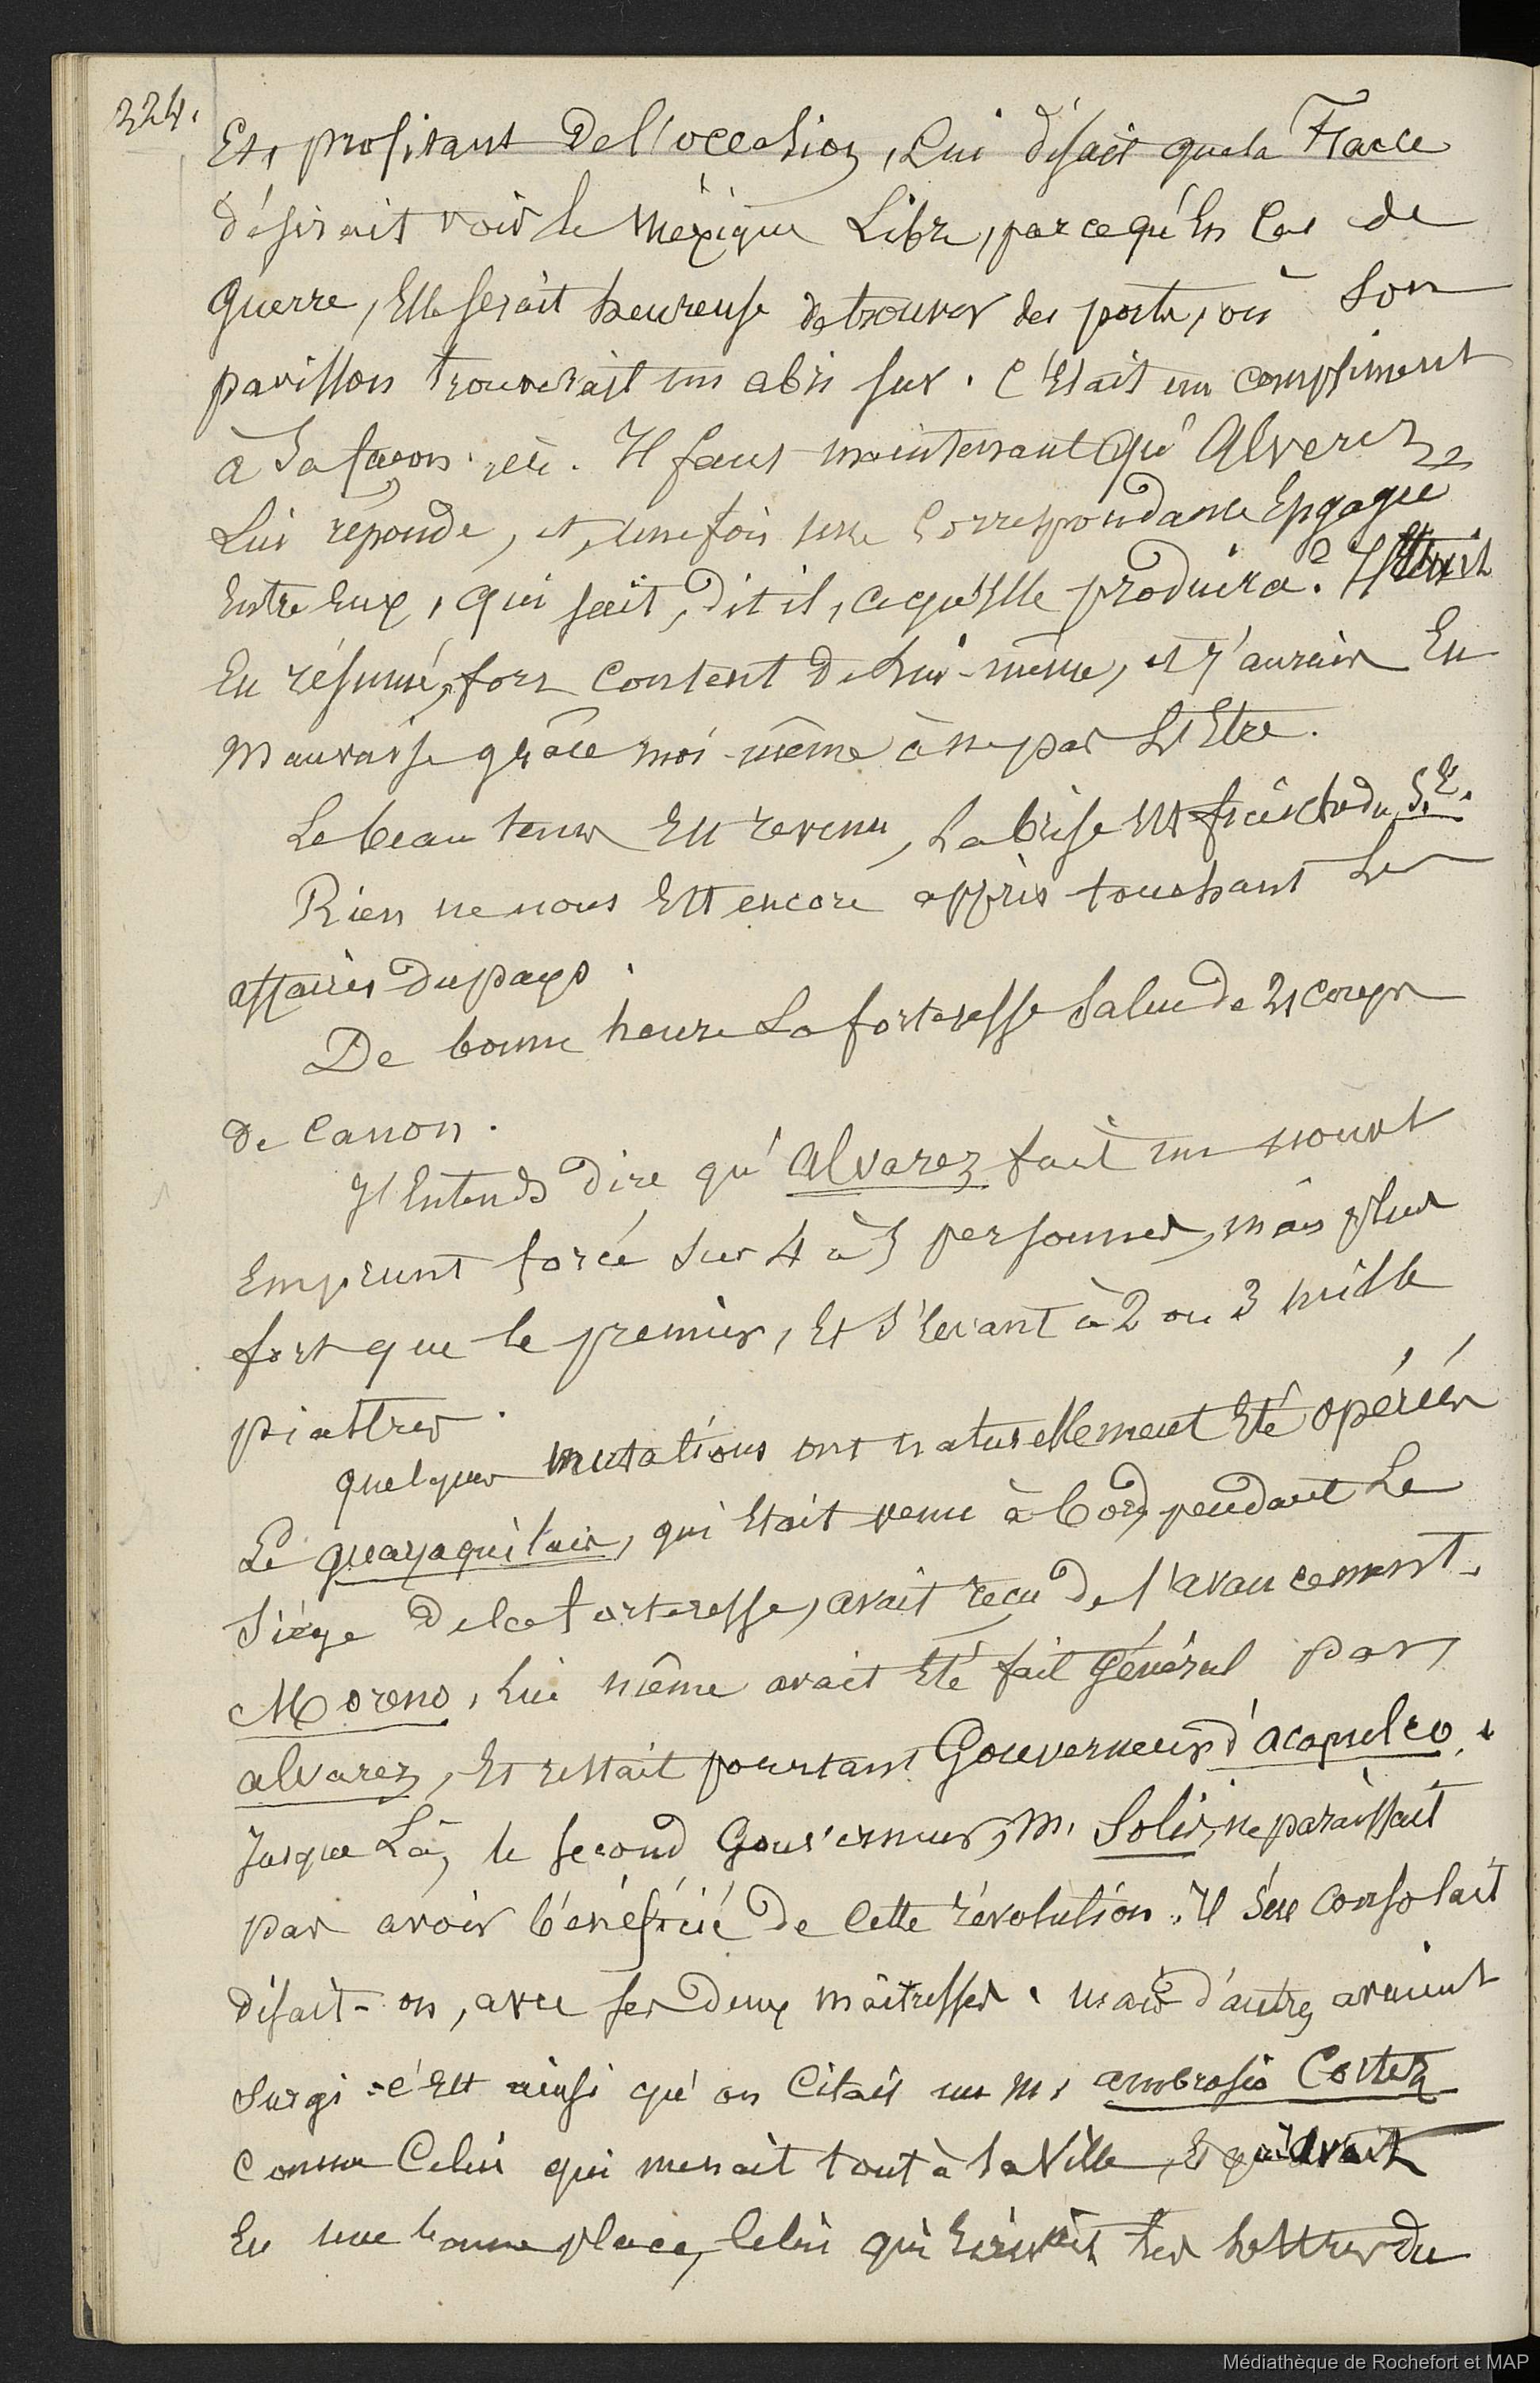 224.
Et, profitant de l'occasion, lui disait que la France
désirait voir le Méxique Libre, parcequ'en cas de
guerre, Elle serait heureuse de trouver des ports, où son
pavillon trouverait un abri sur. C'était un compliment
à sa façon. Il faut maintenant qu'Alvarez
Lui réponde, et, une fois une correspondance Engagée
Entre Eux, qui sait, dit il, ce qu'Elle produira? Il était
En résumé, fort content de Lui-même, et j'aurais Eu
mauvaise grâce moi-même à ne pas L'Etre.
Le beau tems Est revenu, La brise Est fraîche du S.E.
Rien ne nous Est encore appris touchant Les
affaires du pays.
De bonne heure La forteresse salue de 21 coups
de Canon.
J'Entends dire qu'Alvarez fait un nouvel
Emprunt forcé sur 4 à 5 personnes, mais plus
fort que le premier, Et s'élevant à 2 ou 3 mille
piastres.
quelques mutations ont naturellement Eté opérées
Le guayaquilais, qui Etait venu à bord pendant Le
siège de la forteresse, avait reçu de l'avancement.
Moreno, Lui même avait Eté fait Général par
alvarez, Et restait pourtant Gouverneur d'acapulco.
Jusque Là, le second Gouverneur, M. Solis, ne paraissait
pas avoir bénéficié de Cette révolution. Il s'en consolait
disait-on, avec ses deux maîtresses. mais d'autres avaient
surgi. c'Est ainsi qu'on Citait un M. ambrosio Cortez
comme Celui qui menait tout à la Ville, Et qui avait
Eu une bonne place, celui qui Ecrivait les Lettres du
Médiathèque de Rochefort et MAP